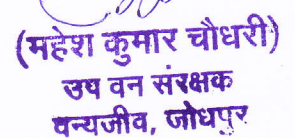 (महेश कुमार चौधरी)
उप वन संरक्षक
वन्यजीव, जोधपुर